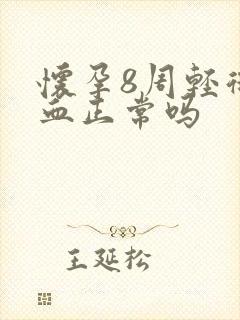 懷孕8周輕
血正常吗
王延松